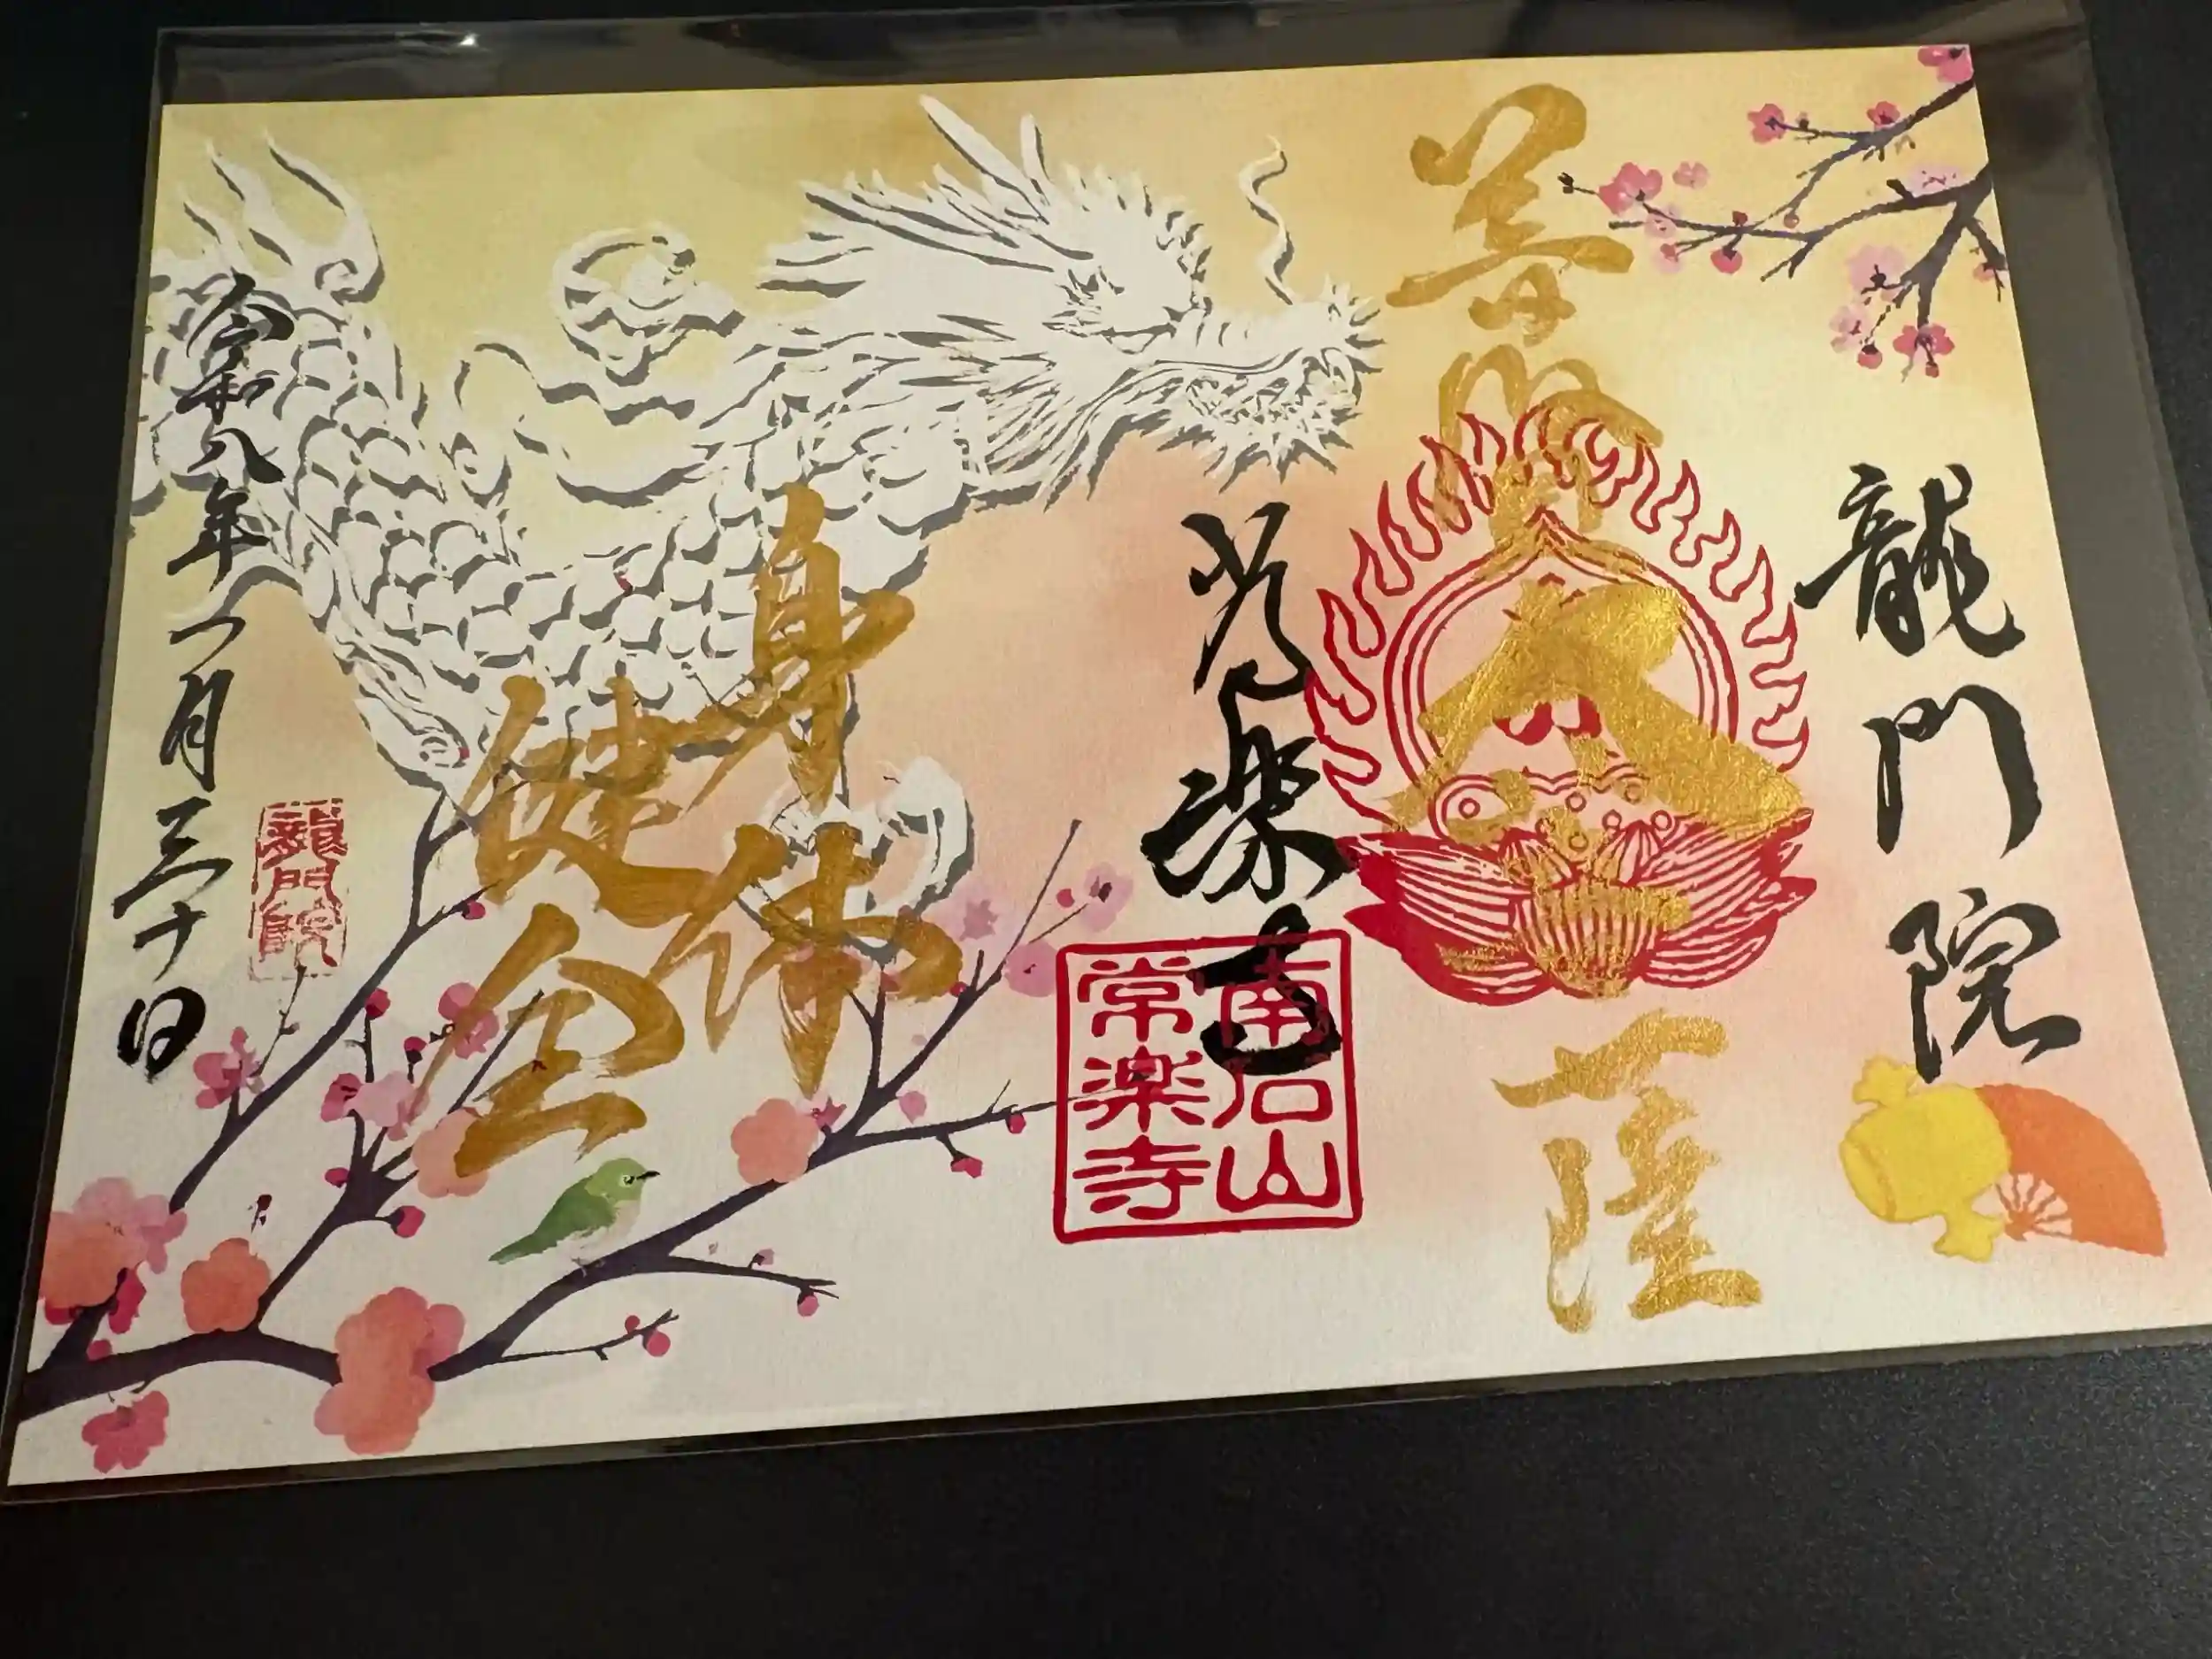 龍門院
普賢菩薩
常楽寺
南石山
常楽寺
身体
健全
令和八年一月三十日
龍門院